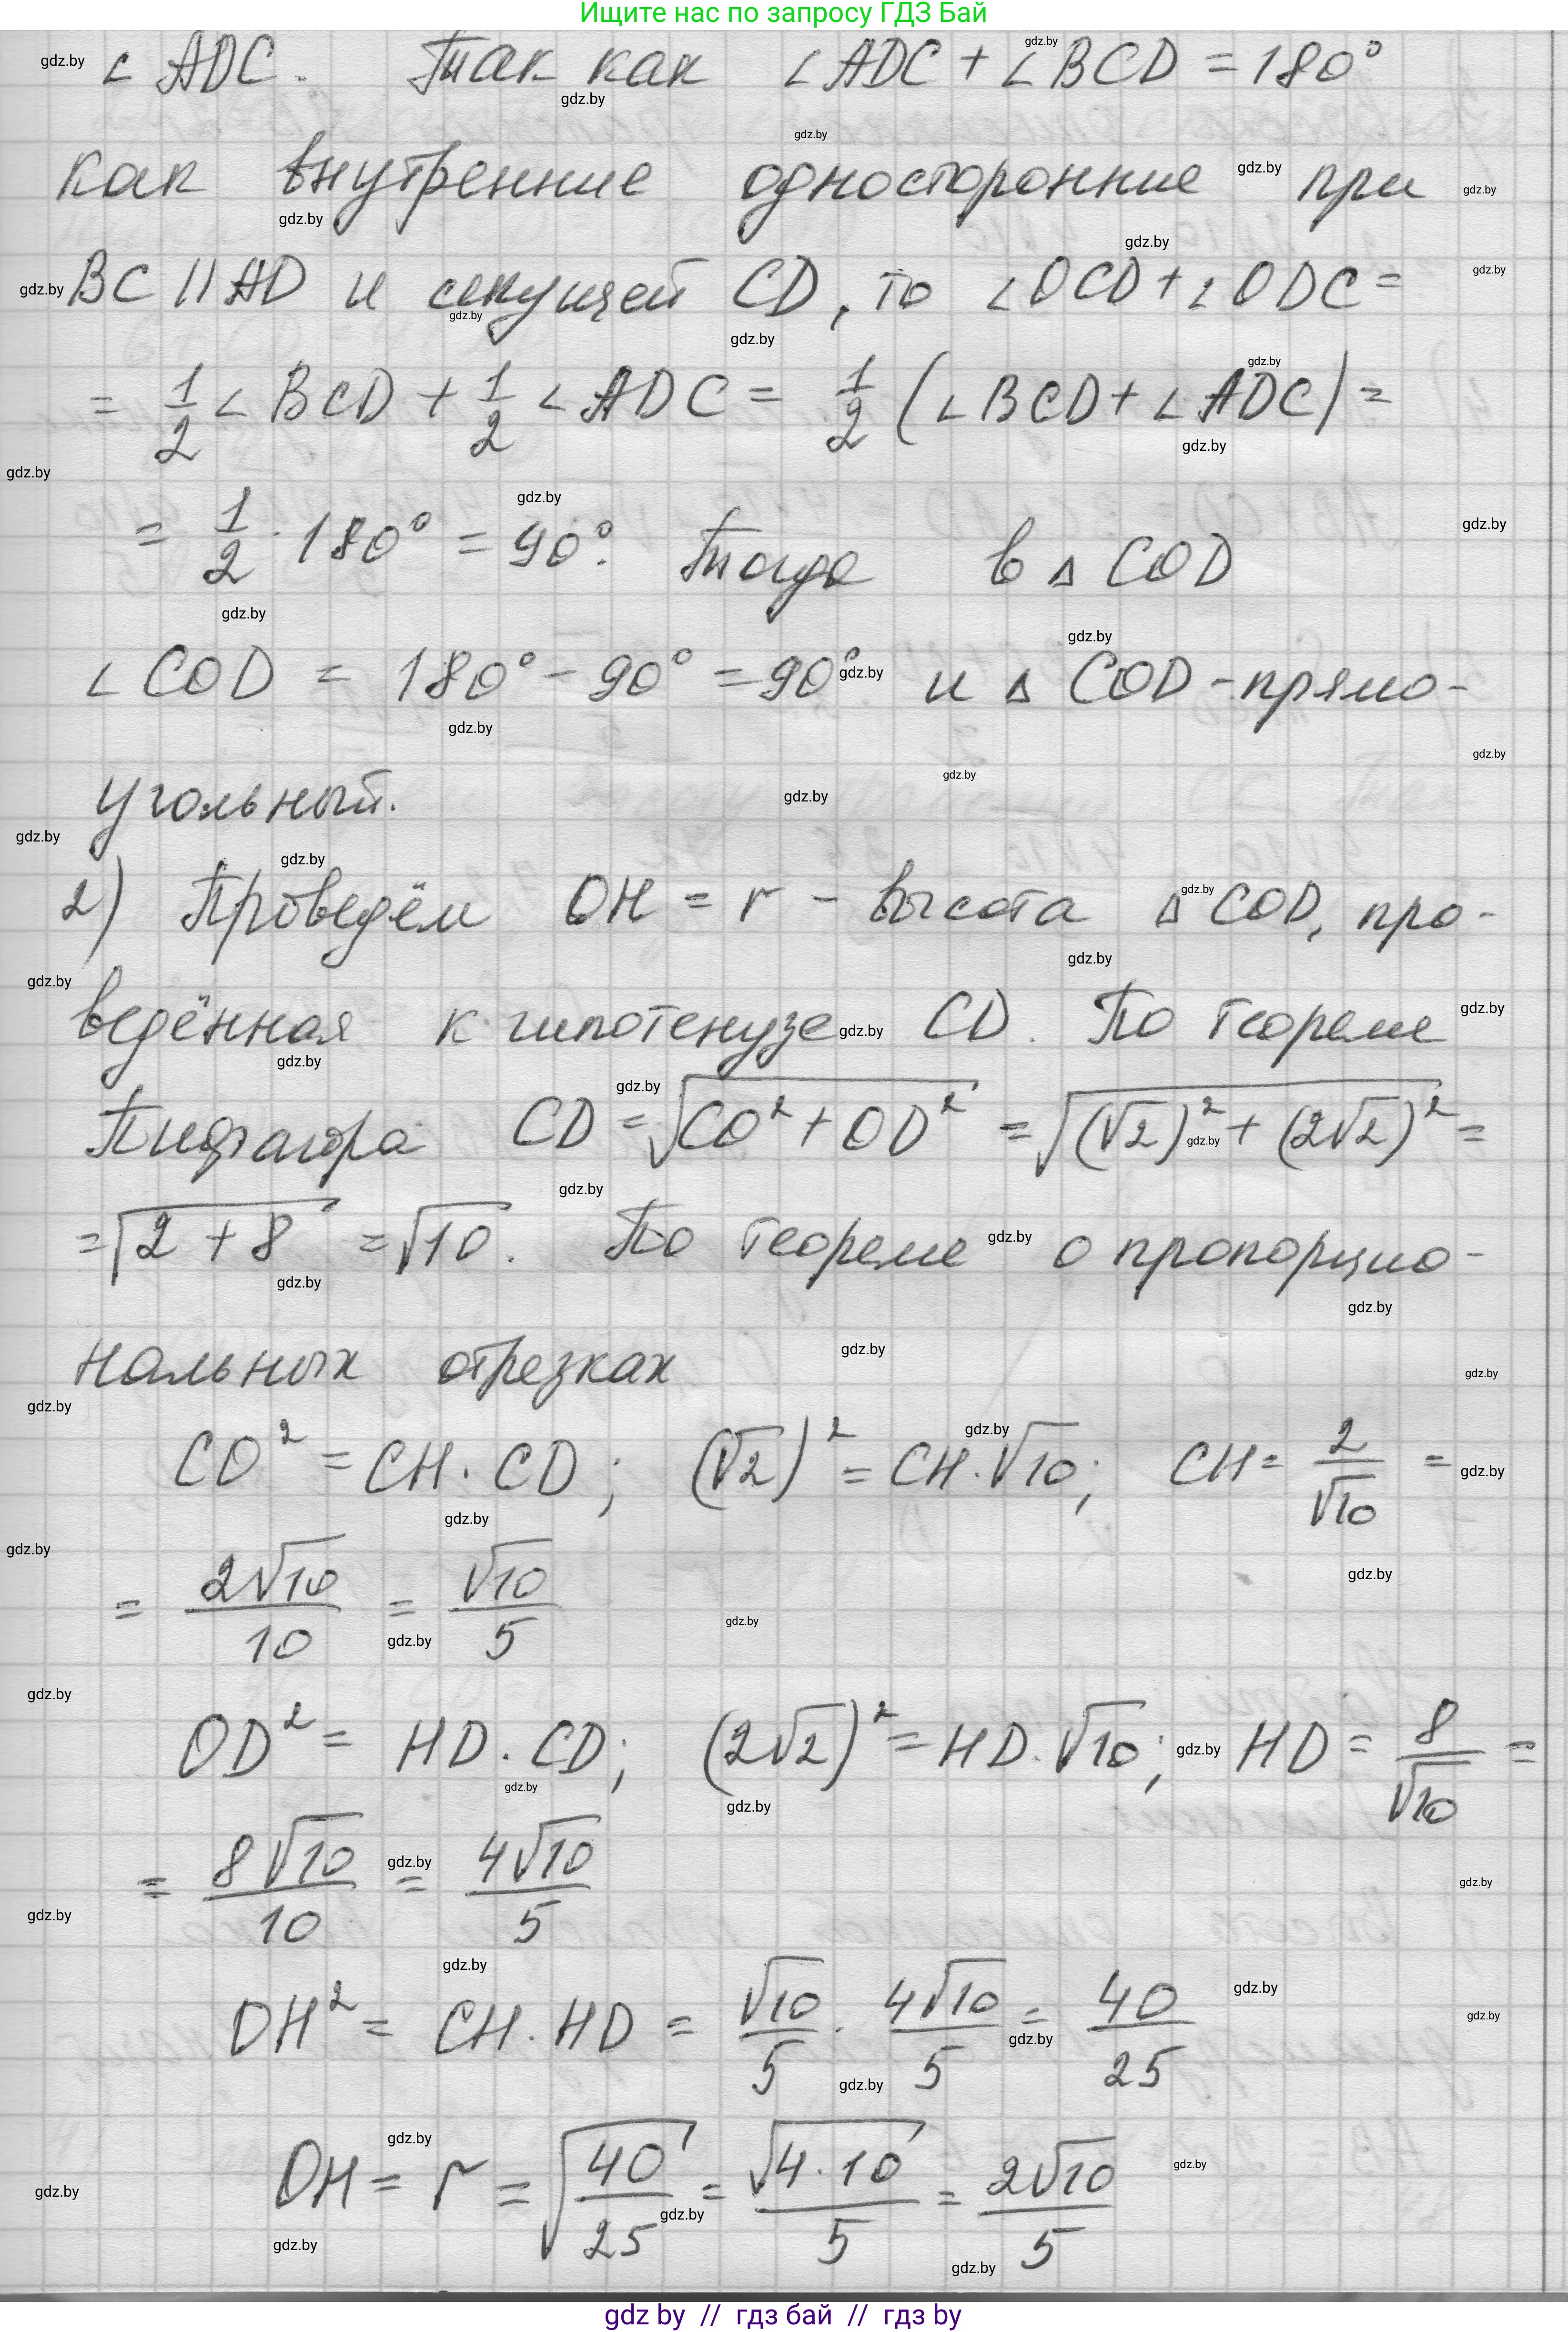 Ищите нас по запросу ГДЗ Бай
∠ ADC. Так как ∠ADC + ∠BCD = 180°
как внутренние односторонние при
BC || AD и секущей CD, то ∠OCD + ∠ODC =
= 1/2 ∠ BCD + 1/2 ∠ ADC = 1/2 (∠BCD + ∠ADC) =
= 1/2 · 180° = 90°. Тогда в Δ COD
∠ COD = 180° - 90° = 90° и Δ COD - прямо-
угольный.
2) Проведём OH = r - высота Δ COD, про-
ведённая к гипотенузе CD. По теореме
Пифагора CD = √(CO² + OD²) = √((√2)² + (2√2)²) =
= √(2 + 8) = √10. По теореме о пропорцио-
нальных отрезках
CO² = CH · CD; (√2)² = CH · √10; CH = 2/√10 =
= 2√10/10 = √10/5
OD² = HD · CD; (2√2)² = HD · √10; HD = 8/√10 =
= 8√10/10 = 4√10/5
OH² = CH · HD = √10/5 · 4√10/5 = 40/25
OH = r = √(40/25) = √(4·10)/5 = 2√10/5
gdz by // гдз бай // гдз by